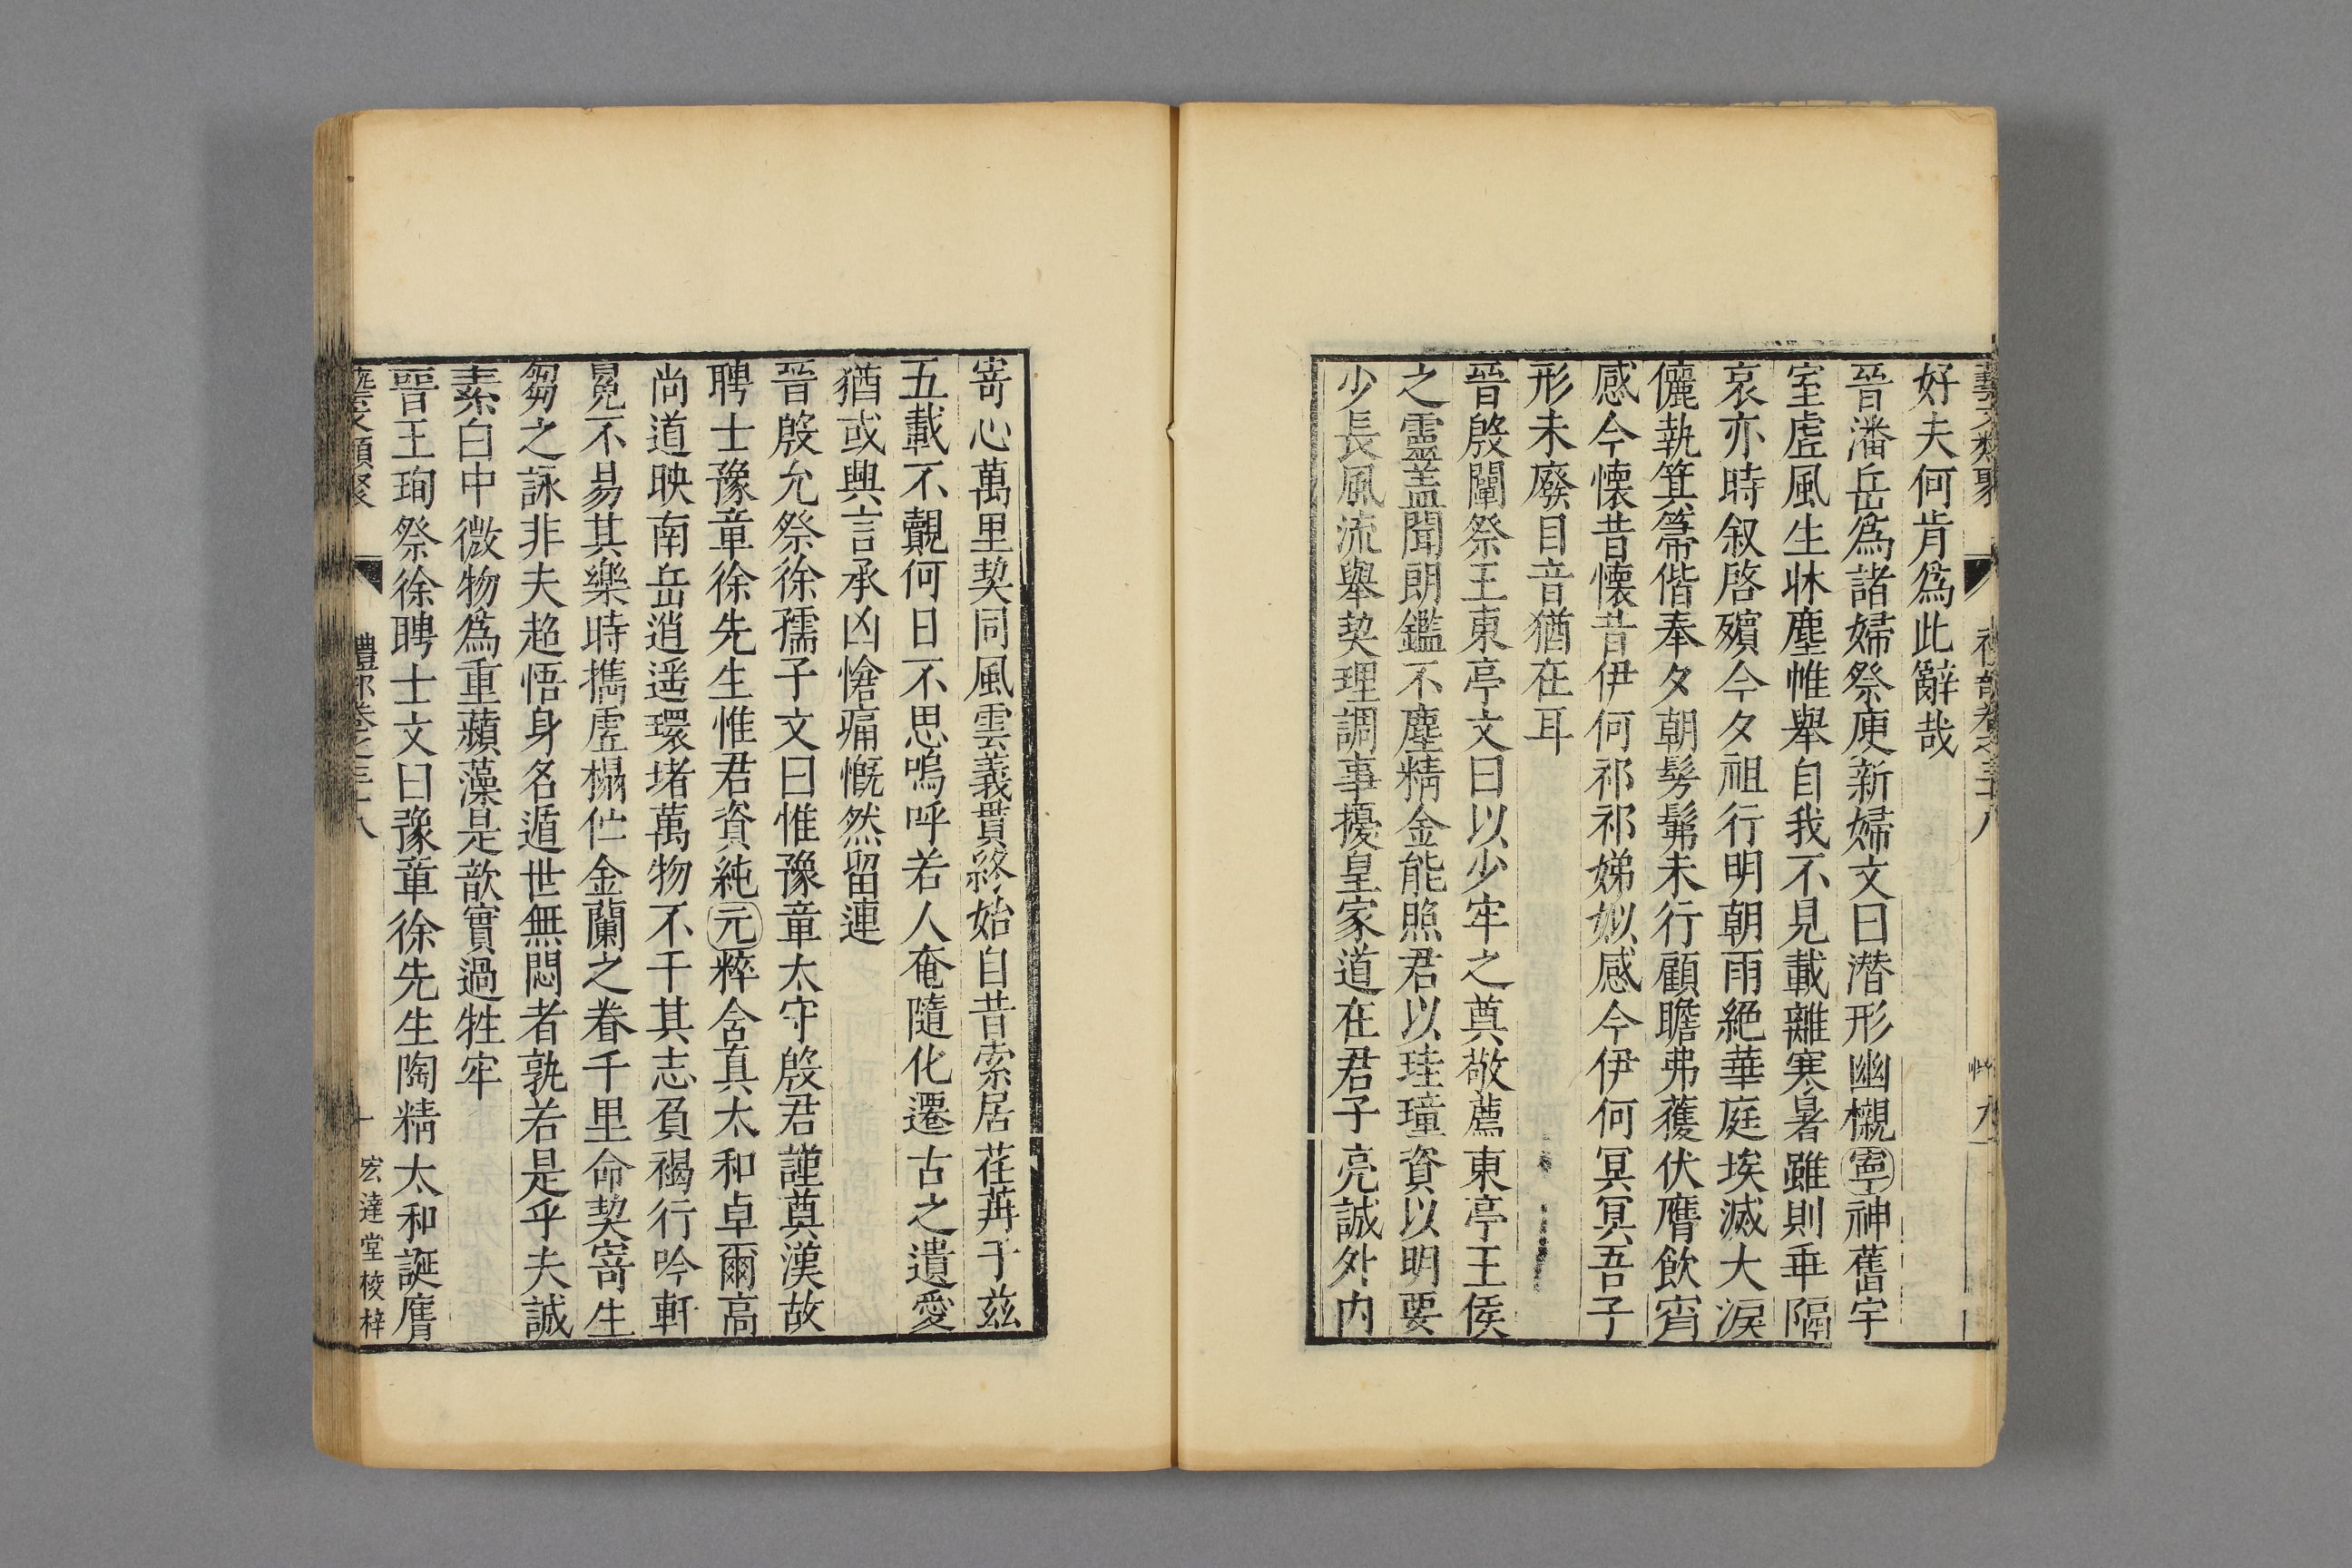 藝文類聚 禮部卷之三十八 九
好夫何肯爲此辭哉
晉潘岳爲諸婦祭庾新婦文曰潛形幽櫬寧神舊宇
室虛風生牀塵帷舉自我不見載離寒暑雖則乖隔
哀亦時叙啓殯今夕祖行明朝雨絕華庭埃滅大淚
儷執箕箒偕奉夕朝髣髴未行顧瞻弗獲伏膺飲宵
感今懷昔懷昔伊何祁祁娣姒感今伊何冥冥吾子
形未廢目音猶在耳
晉殷闡祭王東亭文曰以少牢之奠敬薦東亭王侯
之靈蓋聞朗鑑不塵精金能照君以珪璋資以明要
少長風流舉契理調事擾皇家道在君子亮誠外内
寄心萬里契同風雲義貫終始自昔索居荏苒于茲
五載不覿何日不思嗚呼若人奄隨化遷古之遺愛
猶或興言承凶愴痛慨然留連
晉殷允祭徐孺子文曰惟豫章太守殷君謹奠漢故
聘士豫章徐先生惟君資純元粹含眞太和卓爾高
尚道映南岳逍遥環堵萬物不干其志負褐行吟軒
冕不易其樂時攜虛榻佇金蘭之眷千里命契寄生
芻之詠非夫超悟身名遁世無悶者孰若是乎夫誠
素白中微物爲重蘋藻是歆實過牲牢
晉王珣祭徐聘士文曰豫章徐先生陶精太和誕膺
藝文類聚 禮部卷之三十八 十 宏達堂校梓